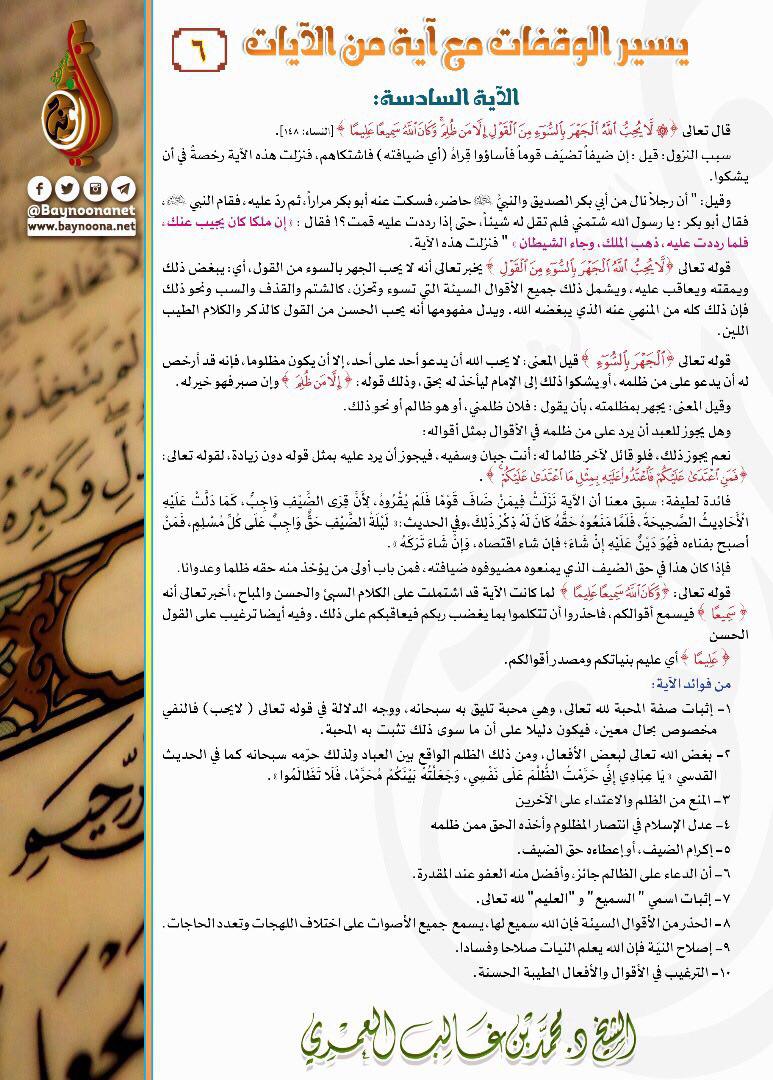 يسير الوقفات مع آية من الآيات
٦
الآية السادسة:
@Baynoonanet
www.baynoona.net
قال تعالى ﴿ ۞ لَّا يُحِبُّ ٱللَّهُ ٱلۡجَهۡرَ بِٱلسُّوٓءِ مِنَ ٱلۡقَوۡلِ إِلَّا مَن ظُلِمَۚ وَكَانَ ٱللَّهُ سَمِيعًا عَلِيمًا ﴾ [النساء: ١٤٨].
سبب النزول: قيل : إن ضيفاً تضيَف قوماً فأساؤوا قِراهُ (أي ضيافته) فاشتكاهم، فنزلت هذه الآية رخصةً في أن
يشكوا.
وقيل: " أن رجلاً نال من أبي بكر الصديق والنبيُّ ﷺ حاضر، فسكت عنه أبو بكر مراراً، ثم ردّ عليه، فقام النبي ﷺ،
فقال أبو بكر : يا رسول الله شتمني فلم تقل له شيئاً، حتى إذا رددت عليه قمت؟! فقال : «إن ملكا كان يجيب عنك،
فلما رددت عليه، ذهب الملك، وجاء الشيطان» " فنزلت هذه الآية.
قوله تعالى ﴿ لَّا يُحِبُّ ٱللَّهُ ٱلۡجَهۡرَ بِٱلسُّوٓءِ مِنَ ٱلۡقَوۡلِ ﴾ يخبر تعالى أنه لا يحب الجهر بالسوء من القول، أي: يبغض ذلك
ويمقته ويعاقب عليه، ويشمل ذلك جميع الأقوال السيئة التي تسوء وتحزن، كالشتم والقذف والسب ونحو ذلك
فإن ذلك كله من المنهي عنه الذي يبغضه الله. ويدل مفهومها أنه يحب الحسن من القول كالذكر والكلام الطيب
اللين.
قوله تعالى ﴿ ٱلۡجَهۡرَ بِٱلسُّوٓءِ ﴾ قيل المعنى: لا يحب الله أن يدعو أحد على أحد، إلا أن يكون مظلوما، فإنه قد أرخص
له أن يدعو على من ظلمه، أو يشكوا ذلك إلى الإمام ليأخذ له بحق، وذلك قوله: ﴿ إِلَّا مَن ظُلِمَ ﴾ وإن صبر فهو خير له.
وقيل المعنى: يجهر بمظلمته، بأن يقول : فلان ظلمني، أو هو ظالم أو نحو ذلك.
وهل يجوز للعبد أن يرد على من ظلمه في الأقوال بمثل أقواله:
نعم يجوز ذلك، فلو قائل لآخر ظالما له: أنت جبان وسفيه، فيجوز أن يرد عليه بمثل قوله دون زيادة، لقوله تعالى:
﴿ فَمَنِ ٱعۡتَدَىٰ عَلَيۡكُمۡ فَٱعۡتَدُواْ عَلَيۡهِ بِمِثۡلِ مَا ٱعۡتَدَىٰ عَلَيۡكُمۡۚ ﴾ .
فائدة لطيفة: سبق معنا أن الآية نَزَلَتْ فِيمَنْ ضَافَ قَوْمًا فَلَمْ يُقْرُوهُ، لِأَنَّ قِرَى الضَّيْفِ وَاجِبٌ، كَمَا دَلَّتْ عَلَيْهِ
الْأَحَادِيثُ الصَّحِيحَةُ، فَلَمَّا مَنَعُوهُ حَقَّهُ كَانَ لَهُ ذِكْرُ ذَلِكَ،وفي الحديث:« لَيْلَةُ الضَّيْفِ حَقٌّ وَاجِبٌ عَلَى كُلِّ مُسْلِمٍ، فَمَنْ
أصبح بفناءه فَهُوَ دَيْنٌ عَلَيْهِ إِنْ شَاءَ؛ فإن شاء اقتصاه، وَإِنْ شَاءَ تَرَكَهُ ».
فإذا كان هذا في حق الضيف الذي يمنعوه مضيوفوه ضيافته، فمن باب أولى من يؤخذ منه حقه ظلما وعدوانا.
قوله تعالى: ﴿ وَكَانَ ٱللَّهُ سَمِيعًا عَلِيمًا ﴾ لما كانت الآية قد اشتملت على الكلام السيئ والحسن والمباح، أخبر تعالى أنه
﴿ سَمِيعًا ﴾ فيسمع أقوالكم، فاحذروا أن تتكلموا بما يغضب ربكم فيعاقبكم على ذلك. وفيه أيضا ترغيب على القول
الحسن
﴿ عَلِيمًا ﴾ أي عليم بنياتكم ومصدر أقوالكم.
من فوائد الآية:
١- إثبات صفة المحبة لله تعالى، وهي محبة تليق به سبحانه، ووجه الدلالة في قوله تعالى ( لايحب) فالنفي
مخصوص بحال معين، فيكون دليلا على أن ما سوى ذلك تثبت به المحبة.
٢- بغض الله تعالى لبعض الأفعال، ومن ذلك الظلم الواقع بين العباد ولذلك حرّمه سبحانه كما في الحديث
القدسي «يَا عِبَادِي إِنِّي حَرَّمْتُ الظُّلْمَ عَلَى نَفْسِي، وَجَعَلْتُهُ بَيْنَكُمْ مُحَرَّمًا، فَلَا تَظَالَمُوا».
٣- المنع من الظلم والاعتداء على الآخرين
٤- عدل الإسلام في انتصار المظلوم وأخذه الحق ممن ظلمه
٥- إكرام الضيف، أو إعطاءه حق الضيف.
٦- أن الدعاء على الظالم جائز، وأفضل منه العفو عند المقدرة.
٧- إثبات اسمي " السميع" و "العليم" لله تعالى.
٨- الحذر من الأقوال السيئة فإن الله سميع لها، يسمع جميع الأصوات على اختلاف اللهجات وتعدد الحاجات.
٩- إصلاح النيّة فإن الله يعلم النيات صلاحا وفسادا.
١٠- الترغيب في الأقوال والأفعال الطيبة الحسنة.
الشيخ د. محمد بن غالب العمري